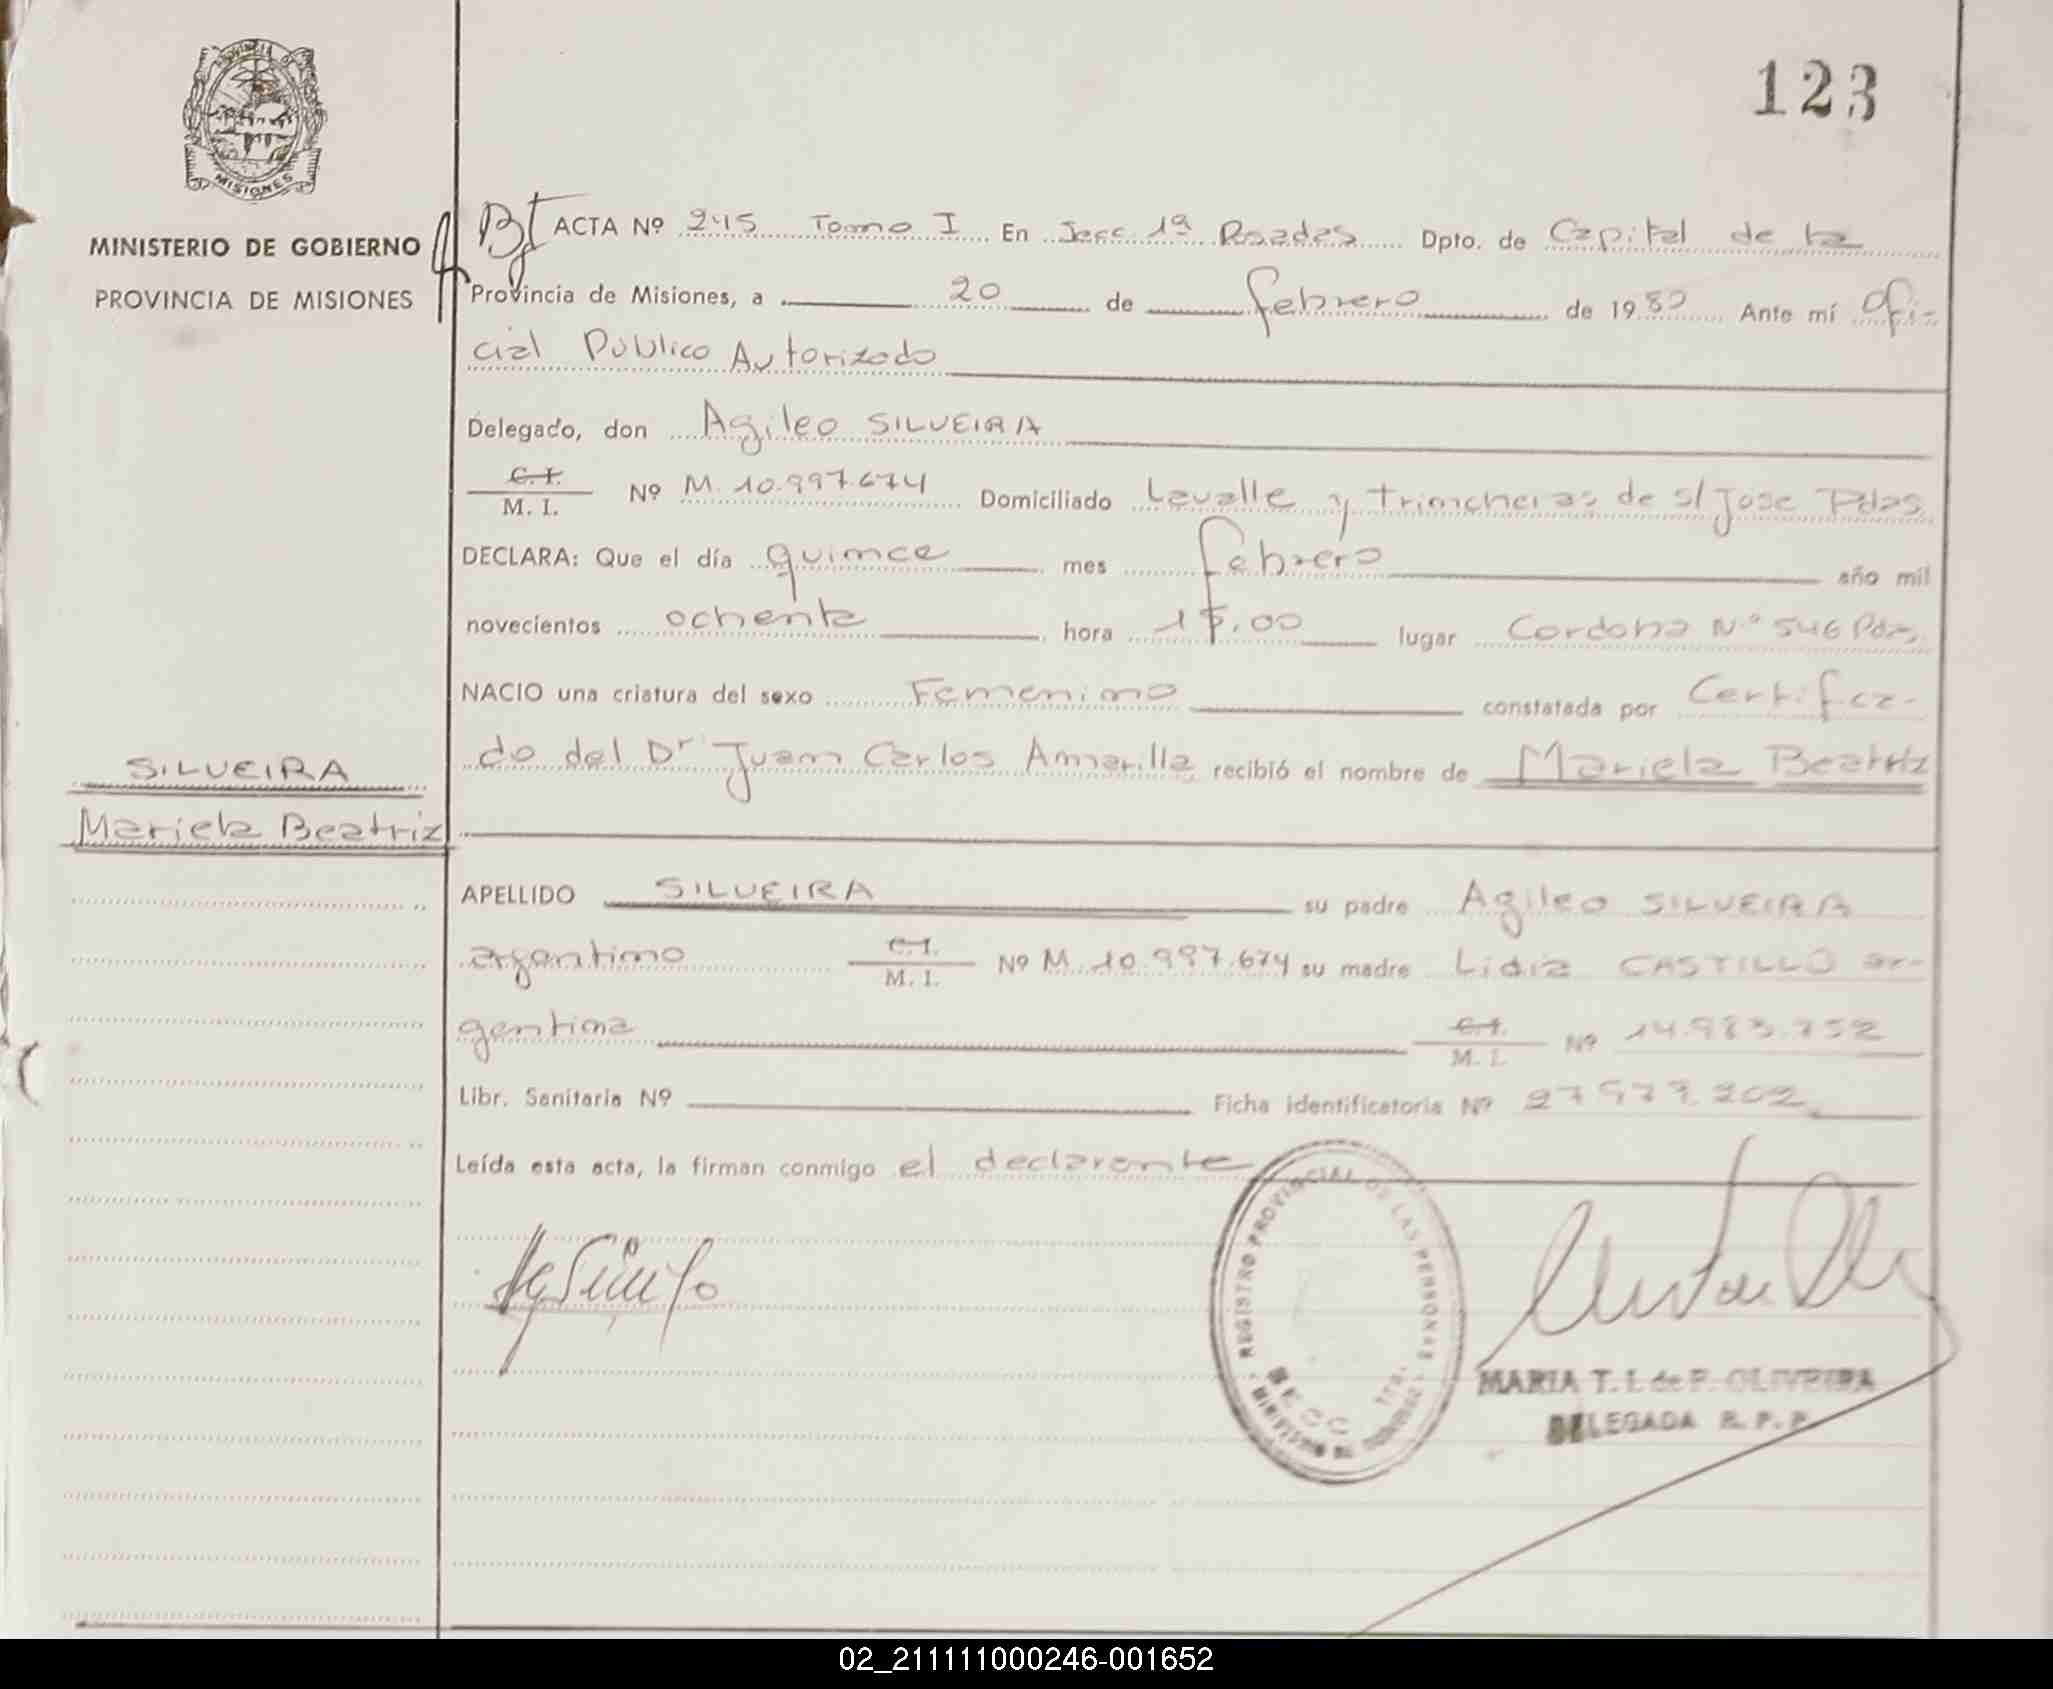 123
MISIONES
MINISTERIO DE GOBIERNO
PROVINCIA DE MISIONES
ACTA Nº 245 Tomo I En Secc 1ª Posadas Dpto. de Capital de la
Provincia de Misiones, a 20 de febrero de 1980 Ante mí Ofi-
cial Publico Autorizado
Delegado, don Agileo SILVEIRA
C.I.
M. I. Nº M. 10.997.674 Domiciliado Lavalle y trincheras de s/ Jose Pdas
DECLARA: Que el día quince mes febrero año mil
novecientos ochenta hora lugar Cordoba Nº 546 Pdas
NACIO una criatura del sexo Femenino constatada por Certifica-
do del Dr Juan Carlos Amarilla recibió el nombre de Mariela Beatriz
SILVEIRA
Mariela Beatriz
APELLIDO SILVEIRA su padre Agileo SILVEIRA
argentino C.I. M. I. Nº M. 10.997.674 su madre Lidia CASTILLO ar-
gentina C.I. M. I. Nº 14.983.752
Libr. Sanitaria Nº Ficha identificatoria Nº
Leída esta acta, la firman conmigo el declarante
REGISTRO PROVINCIAL DE LAS PERSONAS
SECC 1ra.
MINISTERIO DE GOBIERNO
MARIA T. I. de P. OLIVEIRA
DELEGADA R. P. P.
02_211111000246-001652